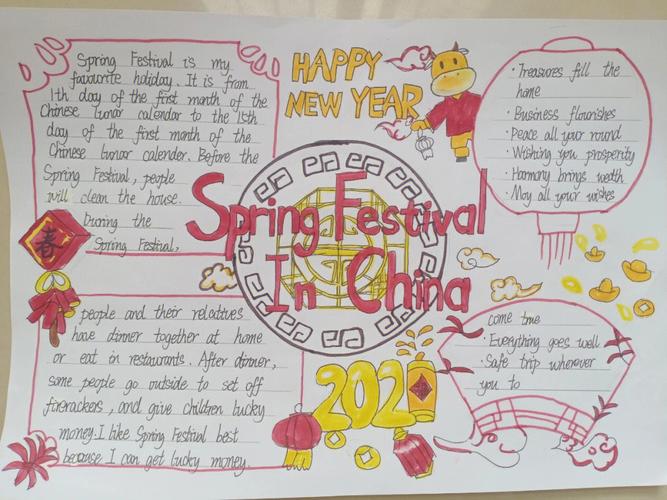 Spring Festival is my
favourite holiday. It is from
1th day of the first month of the
Chinese lunar calendar to the 15th
day of the first month of the
Chinese lunar calender. Before the
Spring Festival, people
will clean the house.
During the
Spring Festival,
春
people and their relatives
have dinner together at home
or eat in restaurants. After dinner,
some people go outside to set off
firecrackers, and give children lucky
money. I like Spring Festival best
because I can get lucky money.
HAPPY
NEW YEAR
Spring Festival
In China
202
· Treasures fill the
home
· Business flourishes
· Peace all your round
· Wishing you prosperity
· Harmony brings wealth
· May all your wishes
come true
· Everything goes well
· Safe trip wherever
you to